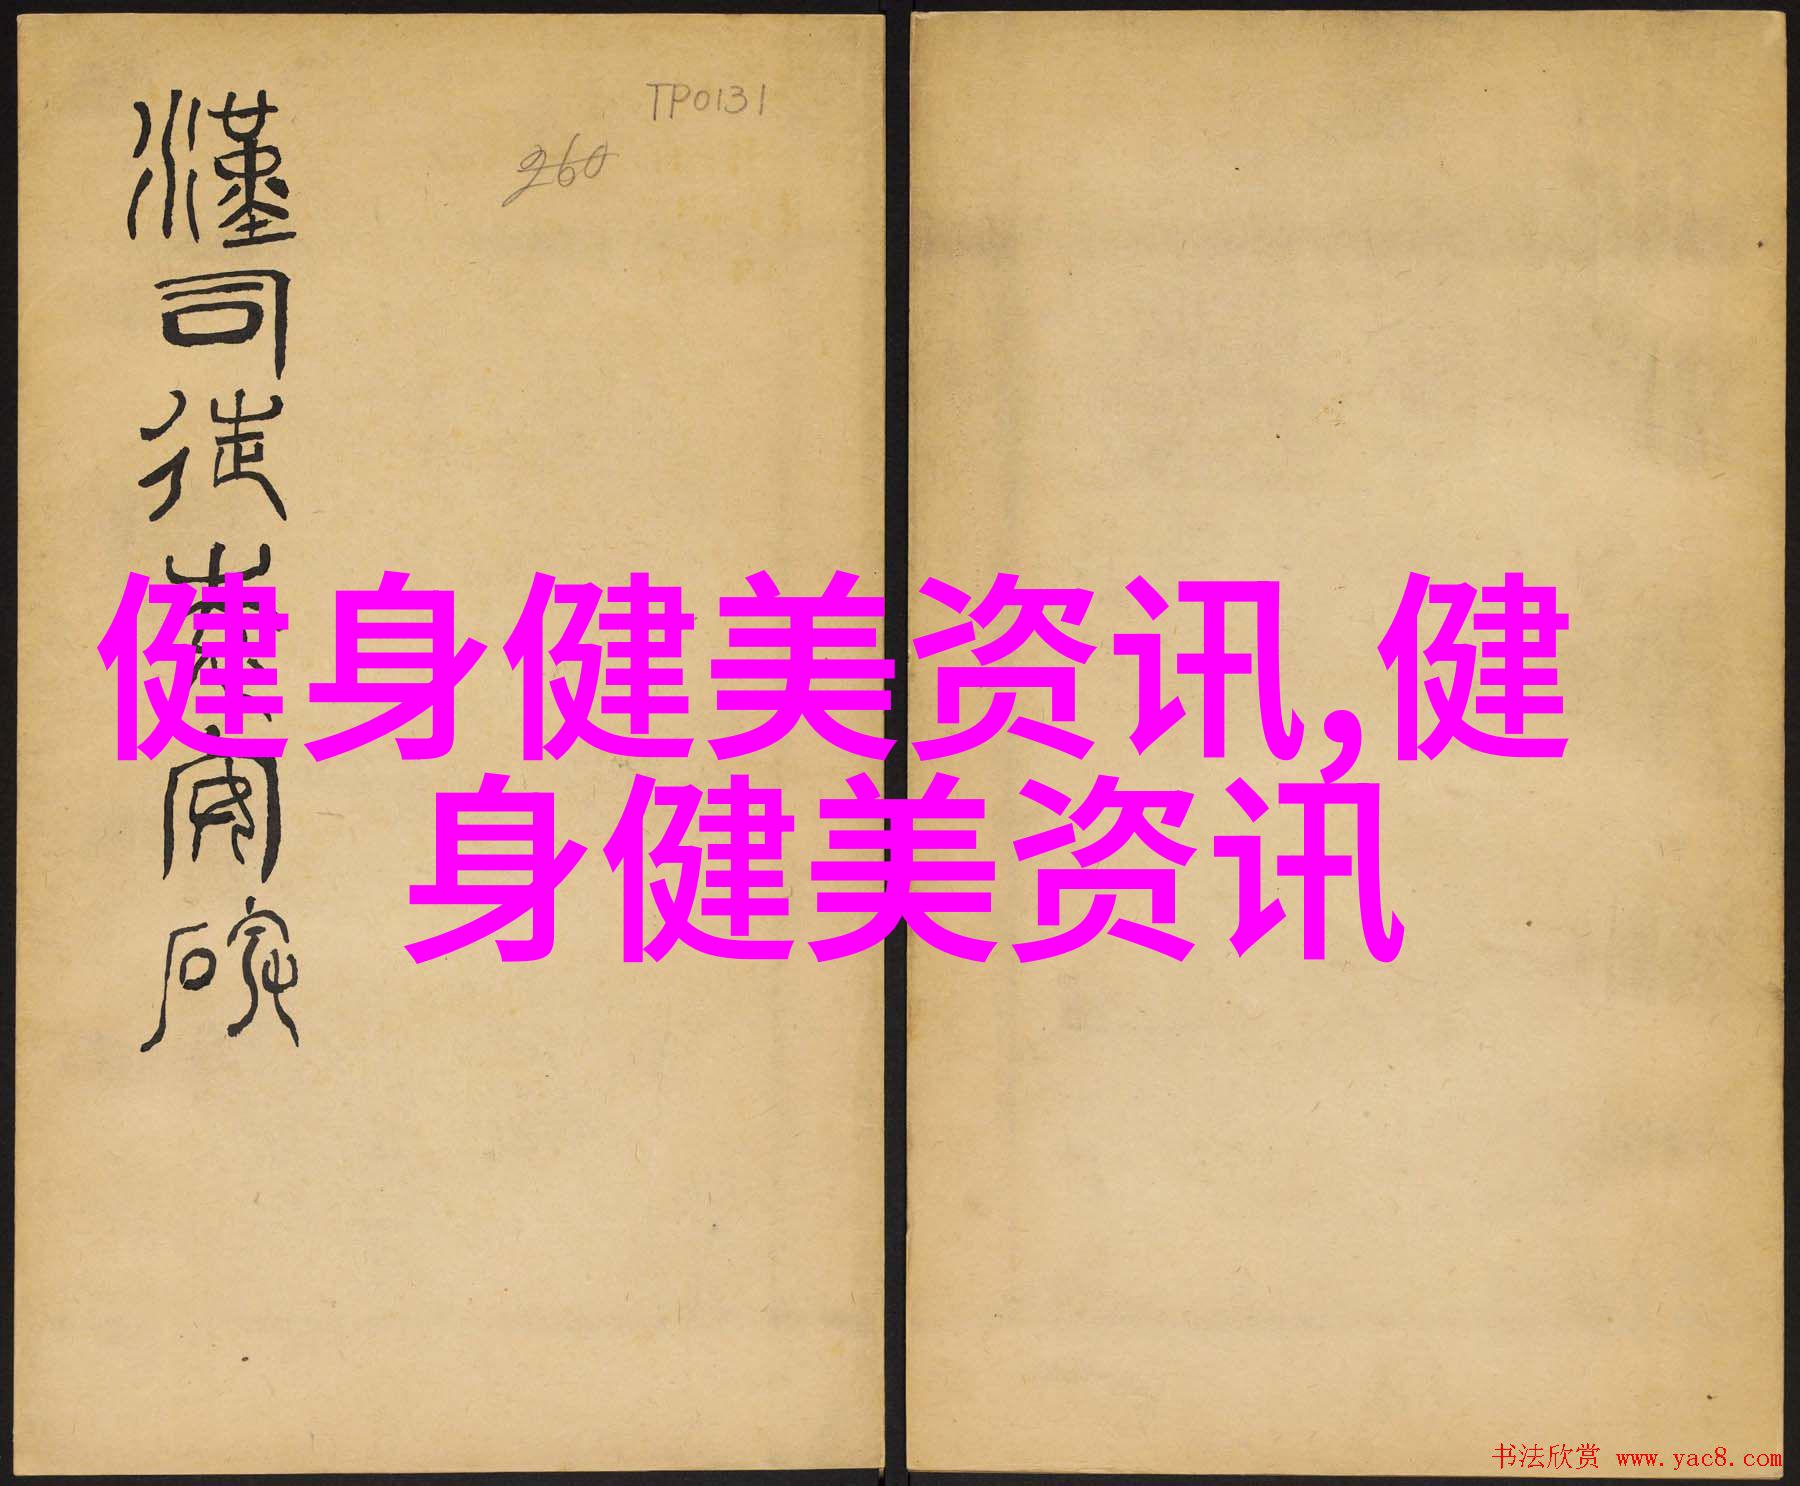 漢司徒袁安碑
TP0131
260
健身健美资讯,健
身健美资讯
书法欣赏 www.yac8.com